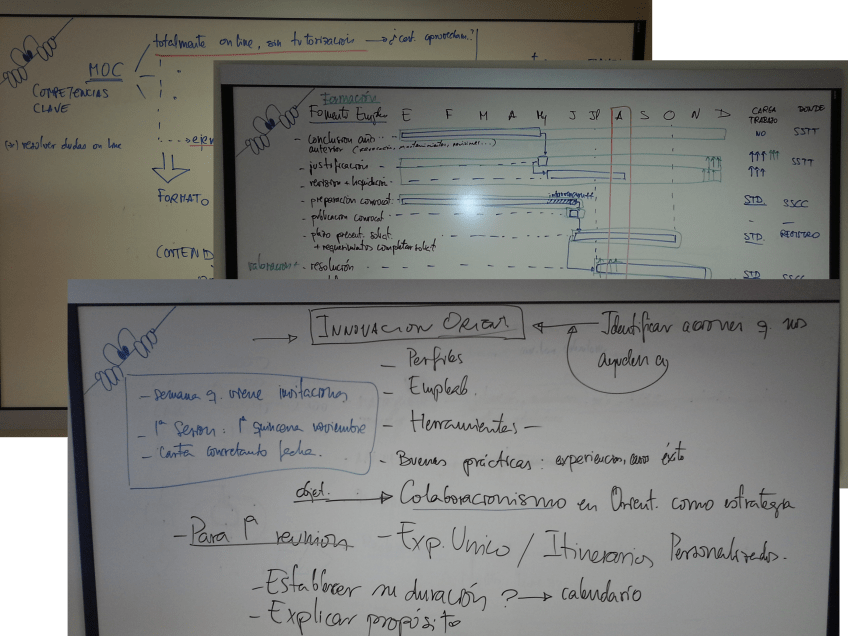 totalmente on line, sin tutorización → ¿cert. aprovecham.?
MOC
COMPETENCIAS
CLAVE
(*) resolver dudas on line
FORMATO
CONTEND
Formación
Fomento Empleo E F M A My J Jl A S O N D CARGA TRABAJO DONDE
- conclusión año anterior NO SSTT
- justificación SSTT
- revisión + liquidación
- preparación convocat. STD. SSCC
- publicación convocat - -
- plazo present. solicit. STD. REGISTRO
+ requerimientos completar solicit
valoración + - resolución STD
→ INNOVACION ORIENT ← Identificar acciones q nos
ayuden a
- Perfiles
- Empleab.
- Herramientas -
- Buenas prácticas: experiencias, caso éxito
- semana q. viene invitaciones
- 1ª sesión: 1ª quincena noviembre
- Carta concretando fecha.
objet. → Colaboracionismo en Orient. como estrategia
- Para 1ª reunion - Exp. Unico / Itinerarios Personalizados.
- Establecer su duración? → calendario
- Explicar propósito